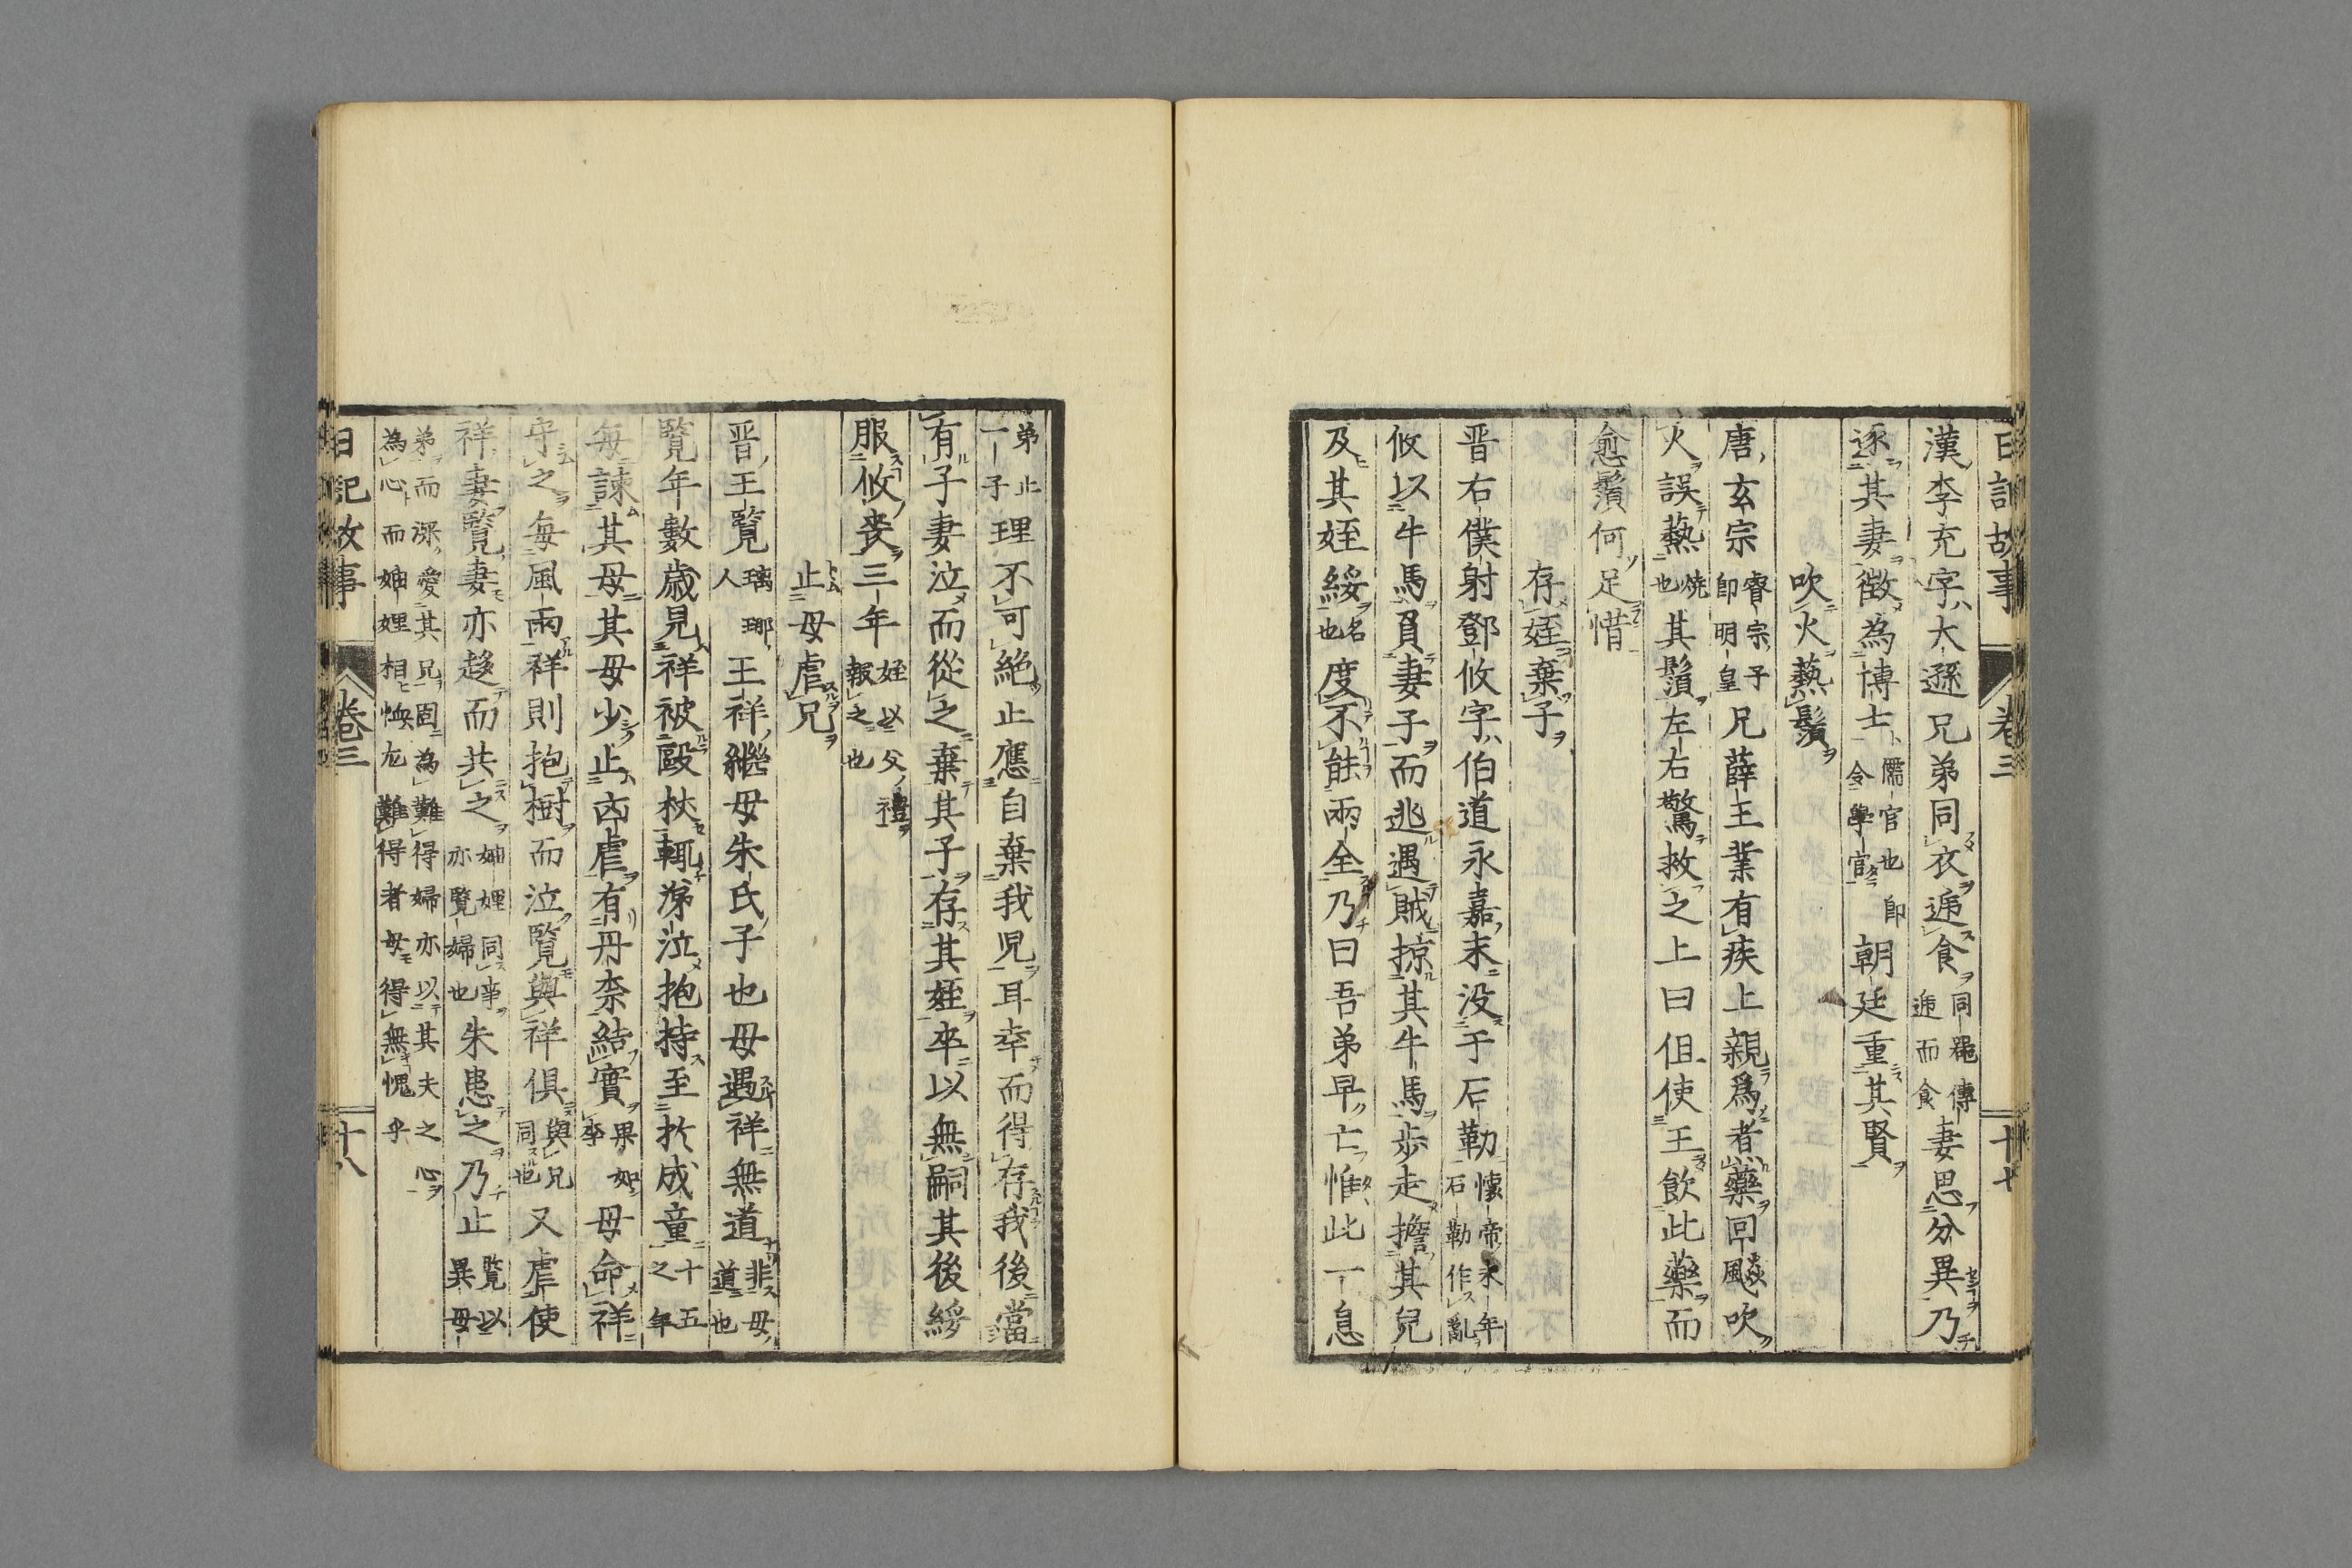 日記故事 卷三 十七
漢李充字大遜兄弟同衣遞食同罷傳遞而食妻思分異乃
逐其妻徵為博士儒官也即令學官朝廷重其賢
吹火爇鬚
唐玄宗睿宗子即明皇兄薛王業有疾上親爲煮藥回飈吹
火誤爇燒也其鬚左右驚救之上曰但使王飲此藥而
愈鬚何足惜
存姪棄子
晋右僕射鄧攸字伯道永嘉末没于石勒懷帝永年石勒作亂
攸以牛馬負妻子而逃遇賊掠其牛馬歩走擔其兒
及其姪綏名也度不能兩全乃曰吾弟早亡惟此一息
弟止一子理不可絶止應自棄我児耳幸而得存我後當
有子妻泣而從之棄其子存其姪卒以無嗣其後綏
服攸喪三年姪以父禮報之也
止母虐兄
晋王覽璃瑯人王祥繼母朱氏子也母遇祥無道非母道也
覽年數歳見祥被毆杖輒涕泣抱持至於成童十五之年
毎諫其母其母少止㐫虐有丹柰結實果如李母命祥
守之毎風雨祥則抱樹而泣覽與祥倶與兄同也又虐使
祥妻覽妻亦趍而共之妯娌同事亦覽婦也朱患之乃止覽以異母
弟而深愛其兄固為難得婦亦以其夫之心為心而妯娌相恤尤難得者母得無愧乎
日記故事 卷三 十八